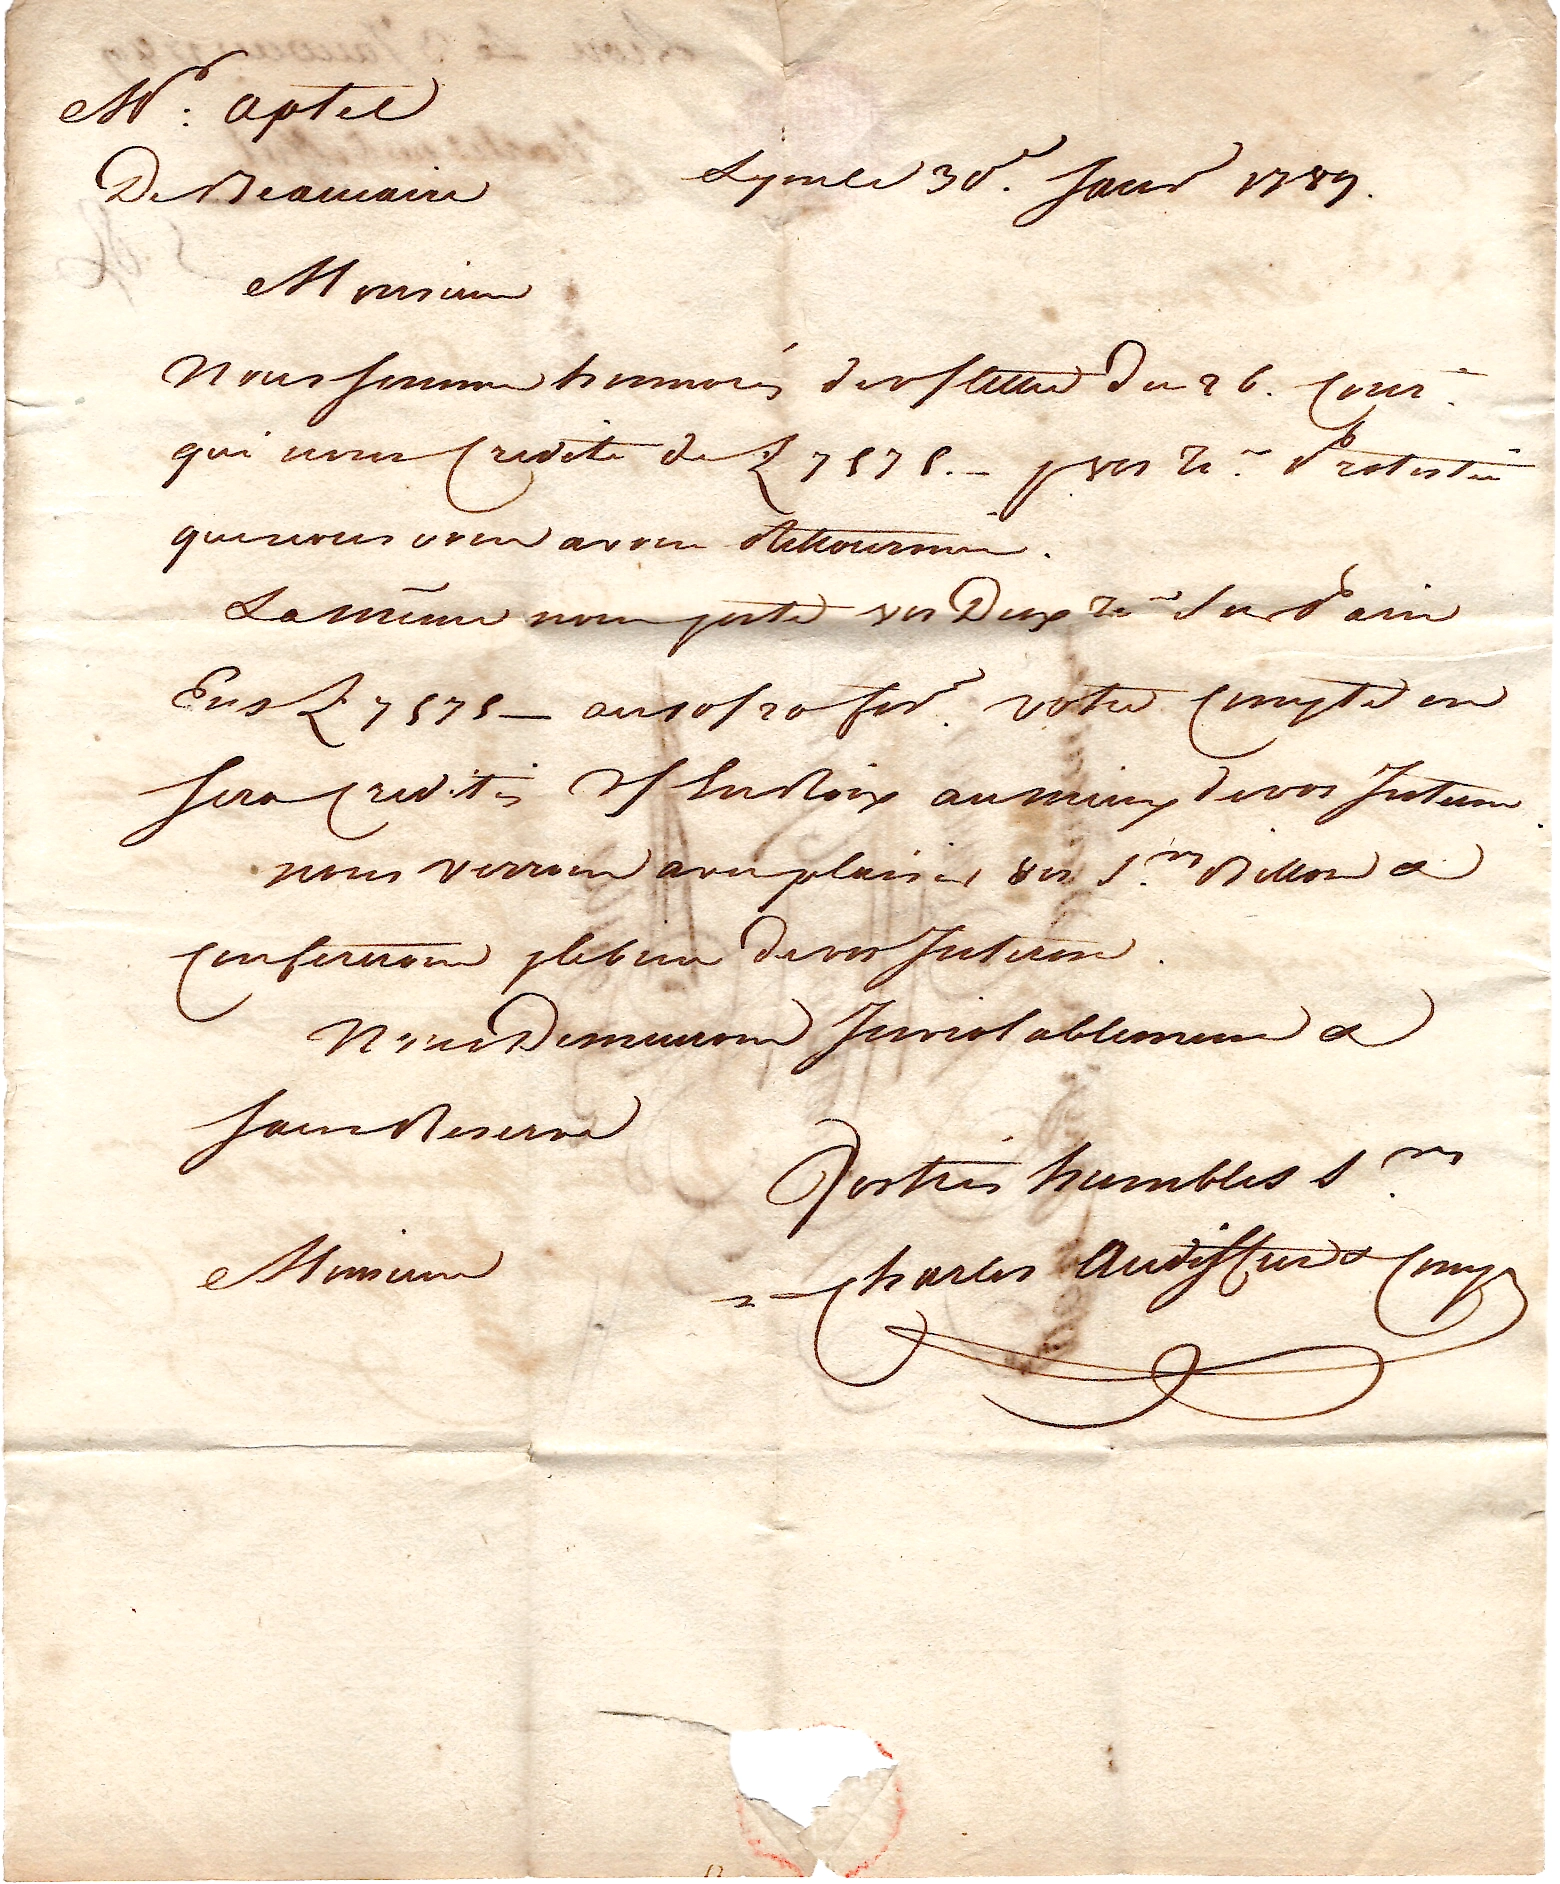 Mr. Aptel
De Beaucaire
Lyon le 30r. Janvr 1789.
Monsieur
Nous sommes honnorés de v/ lettre du 26. Cour.t
qui nous Credite de £ 7575.— p vos Tes. Protestées
que nous vous avons Rettournées.
La même nous porte vos Deux Tes sur Paris
Ens £ 7575— au 10/20 fevr. votre Compte en
sera Credité au mieux de vos Interets
nous verrons avec plaisir vos Srs Billon &
Confererons p le bien de vos Interets.
Nous Demeurons Inviolablement &
sans Reserve
Vos très humbles S.rs
Monsieur
Charles Audiffret & Comp